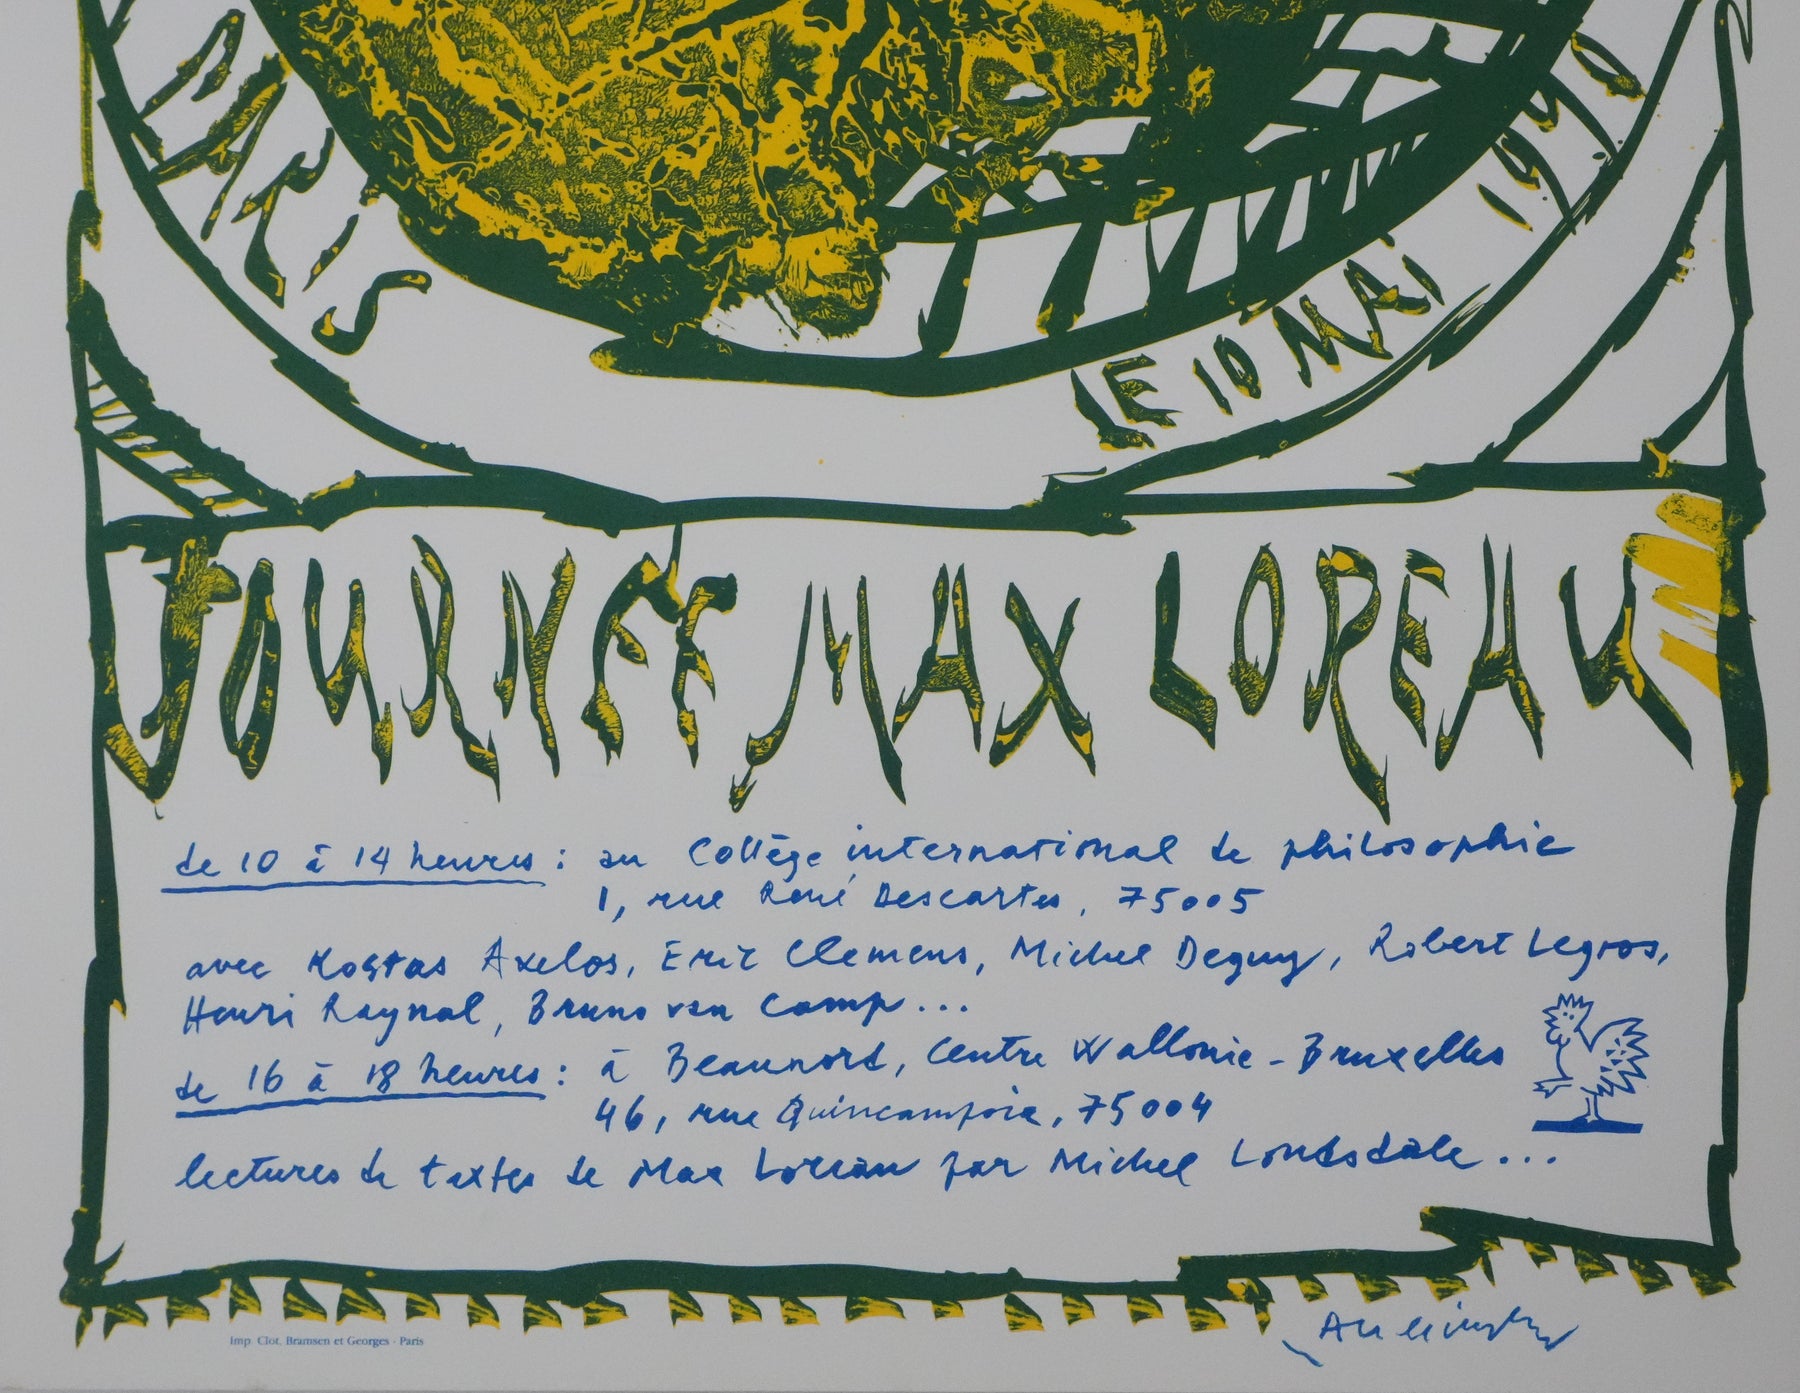 PARIS
LE 10 MAI 1990
JOURNEE MAX LOREAU
de 10 à 14 heures : au Collège international de philosophie
1, rue René Descartes, 75005
avec Kostas Axelos, Eric Clemens, Michel Deguy, Robert Legros,
Henri Raynal, Bruno van Camp...
de 16 à 18 heures : à Beaubourg, Centre Wallonie-Bruxelles
46, rue Quincampoix, 75004
lectures de textes de Max Loreau par Michel Lonsdale...
Imp. Clot, Bramsen et Georges - Paris
Alechinsky